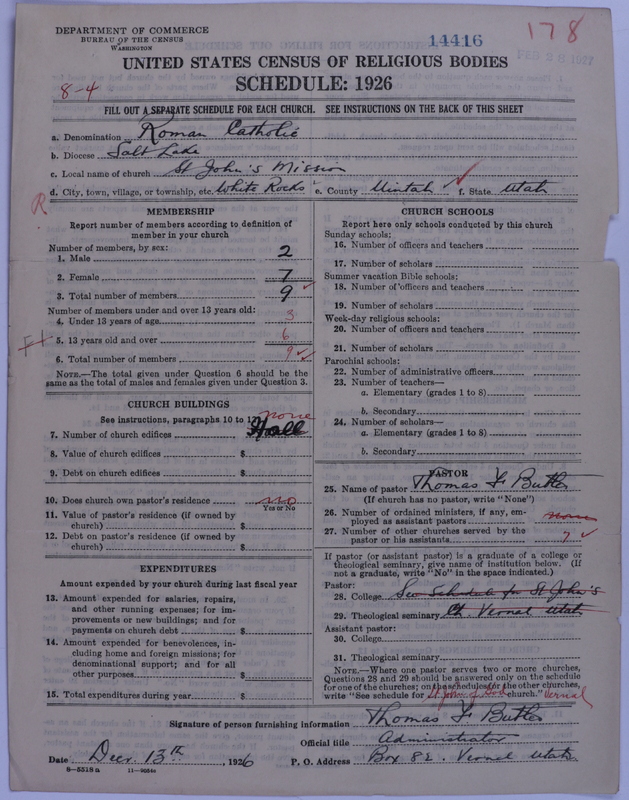 DEPARTMENT OF COMMERCE
BUREAU OF THE CENSUS
WASHINGTON
14416
178
FEB 28 1927
UNITED STATES CENSUS OF RELIGIOUS BODIES
SCHEDULE: 1926
8-4
FILL OUT A SEPARATE SCHEDULE FOR EACH CHURCH. SEE INSTRUCTIONS ON THE BACK OF THIS SHEET
a. Denomination Roman Catholic
b. Diocese Salt Lake
c. Local name of church St John's Mission
d. City, town, village, or township, etc. White Rocks e. County Uintah f. State Utah
R
MEMBERSHIP
Report number of members according to definition of
member in your church
Number of members, by sex:
1. Male 2
2. Female 7
3. Total number of members 9
Number of members under and over 13 years old:
4. Under 13 years of age 3
5. 13 years old and over 6
6. Total number of members 9
NOTE.—The total given under Question 6 should be the
same as the total of males and females given under Question 3.
CHURCH BUILDINGS
See instructions, paragraphs 10 to 1
none
7. Number of church edifices Hall
8. Value of church edifices $
9. Debt on church edifices $
10. Does church own pastor's residence no
Yes or No
11. Value of pastor's residence (if owned by
church) $
12. Debt on pastor's residence (if owned by
church) $
EXPENDITURES
Amount expended by your church during last fiscal year
13. Amount expended for salaries, repairs,
and other running expenses; for im-
provements or new buildings; and for
payments on church debt $
14. Amount expended for benevolences, in-
cluding home and foreign missions; for
denominational support; and for all
other purposes $
15. Total expenditures during year $
CHURCH SCHOOLS
Report here only schools conducted by this church
Sunday schools:
16. Number of officers and teachers
17. Number of scholars
Summer vacation Bible schools:
18. Number of officers and teachers
19. Number of scholars
Week-day religious schools:
20. Number of officers and teachers
21. Number of scholars
Parochial schools:
22. Number of administrative officers
23. Number of teachers—
a. Elementary (grades 1 to 8)
b. Secondary
24. Number of scholars—
a. Elementary (grades 1 to 8)
b. Secondary
PASTOR
25. Name of pastor Thomas F Butler
(If church has no pastor, write "None")
26. Number of ordained ministers, if any, em-
ployed as assistant pastors none
27. Number of other churches served by the
pastor or his assistants 7
If pastor (or assistant pastor) is a graduate of a college or
theological seminary, give name of institution below. (If
not a graduate, write "No" in the space indicated.)
Pastor:
28. College See Schedule for St John's
29. Theological seminary Ch. Vernal Utah
Assistant pastor:
30. College
31. Theological seminary
NOTE.—Where one pastor serves two or more churches,
Questions 28 and 29 should be answered only on the schedule
for one of the churches; on the schedules for the other churches,
write "See schedule for St John of God church." Vernal
Signature of person furnishing information Thomas F Butler
Official title Administrator
Date Decr. 13th, 1926 P. O. Address Box 82. Vernal Utah
8—5318a 11—9034a